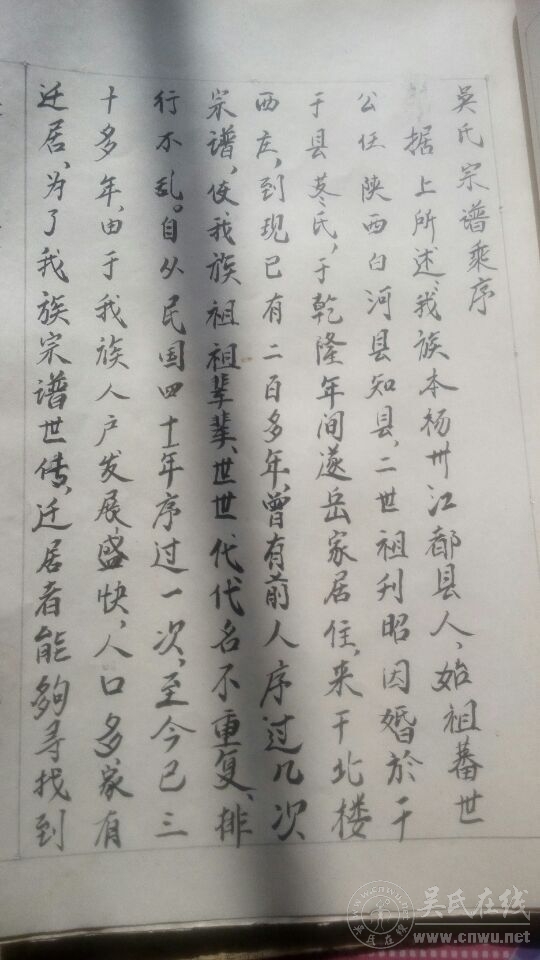 吳氏宗谱乘序
据上所述,我族本杨州江都县人、始祖蕃世
公任陕西白河县知县,二世祖刊昭因婚於干
于县芰氏,于乾隆年间遂岳家居住,来于北楼
西庄,到现已有二百多年,曾有前人序过几次
宗谱,使我族祖祖辈辈、世世代代名不重复、排
行不乱。自从民国四十年序过一次,至今已三
十多年,由于我族人户发展盛快,人口多家有
迁居、为了我族宗谱世传,迁居者能够寻找到
吴氏在线
www.cnwu.net